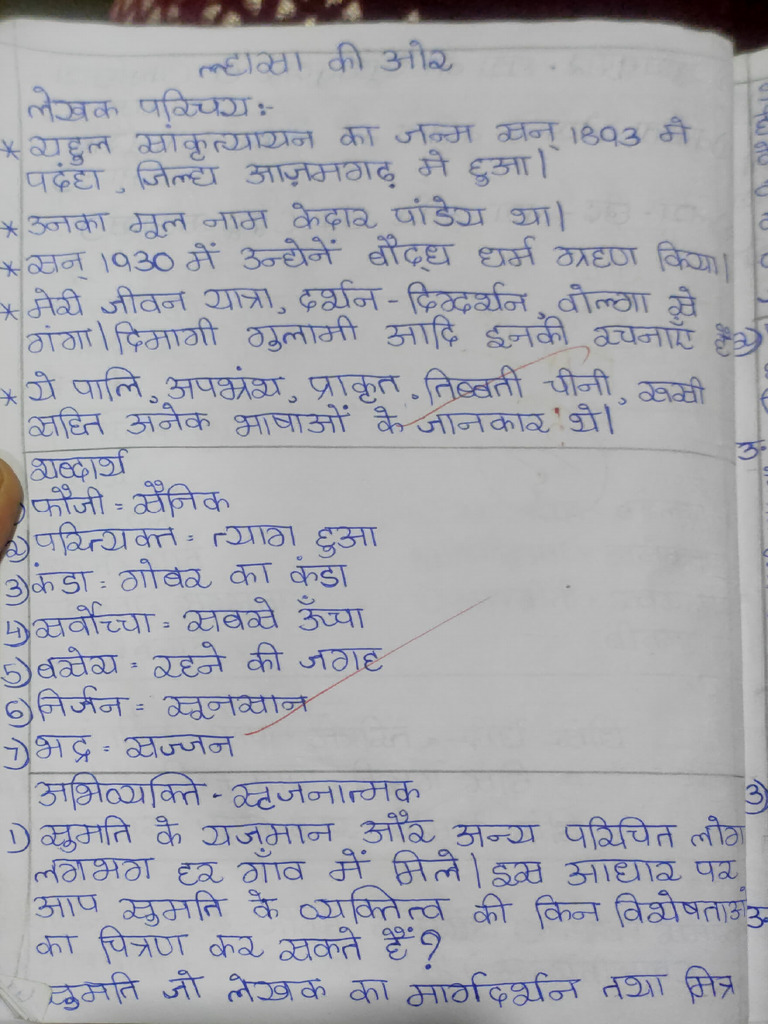 ल्हासा की ओर
लेखक परिचय:-
* राहुल सांकृत्यायन का जन्म सन् 1893 में
पदंहा, जिल्हा आज़मगढ़ में हुआ।
* उनका मूल नाम केदार पांडेय था।
* सन् 1930 में उन्होनें बौद्ध धर्म ग्रहण किया।
* मेरी जीवन यात्रा, दर्शन-दिग्दर्शन, वोल्गा से
गंगा। दिमागी गुलामी आदि इनकी रचनाएँ हैं
* ये पालि, अपभ्रंश, प्राकृत, तिब्बती चीनी, रूसी
सहित अनेक भाषाओं के जानकार थे।
शब्दार्थ
1) फौजी = सैनिक
2) परित्यक्त = त्याग हुआ
3) कंडा = गोबर का कंडा
4) सर्वोच्चा = सबसे ऊँचा
5) बसेरा = रहने की जगह
6) निर्जन = सूनसान
7) भद्र = सज्जन
अभिव्यक्ति - सृजनात्मक
1) सुमति के यज़मान और अन्य परिचित लोग
लगभग हर गाँव में मिले। इस आधार पर
आप सुमति के व्यक्तित्व की किन विशेषताओं
का चित्रण कर सकते हैं?
सुमति जो लेखक का मार्गदर्शन तथा मित्र